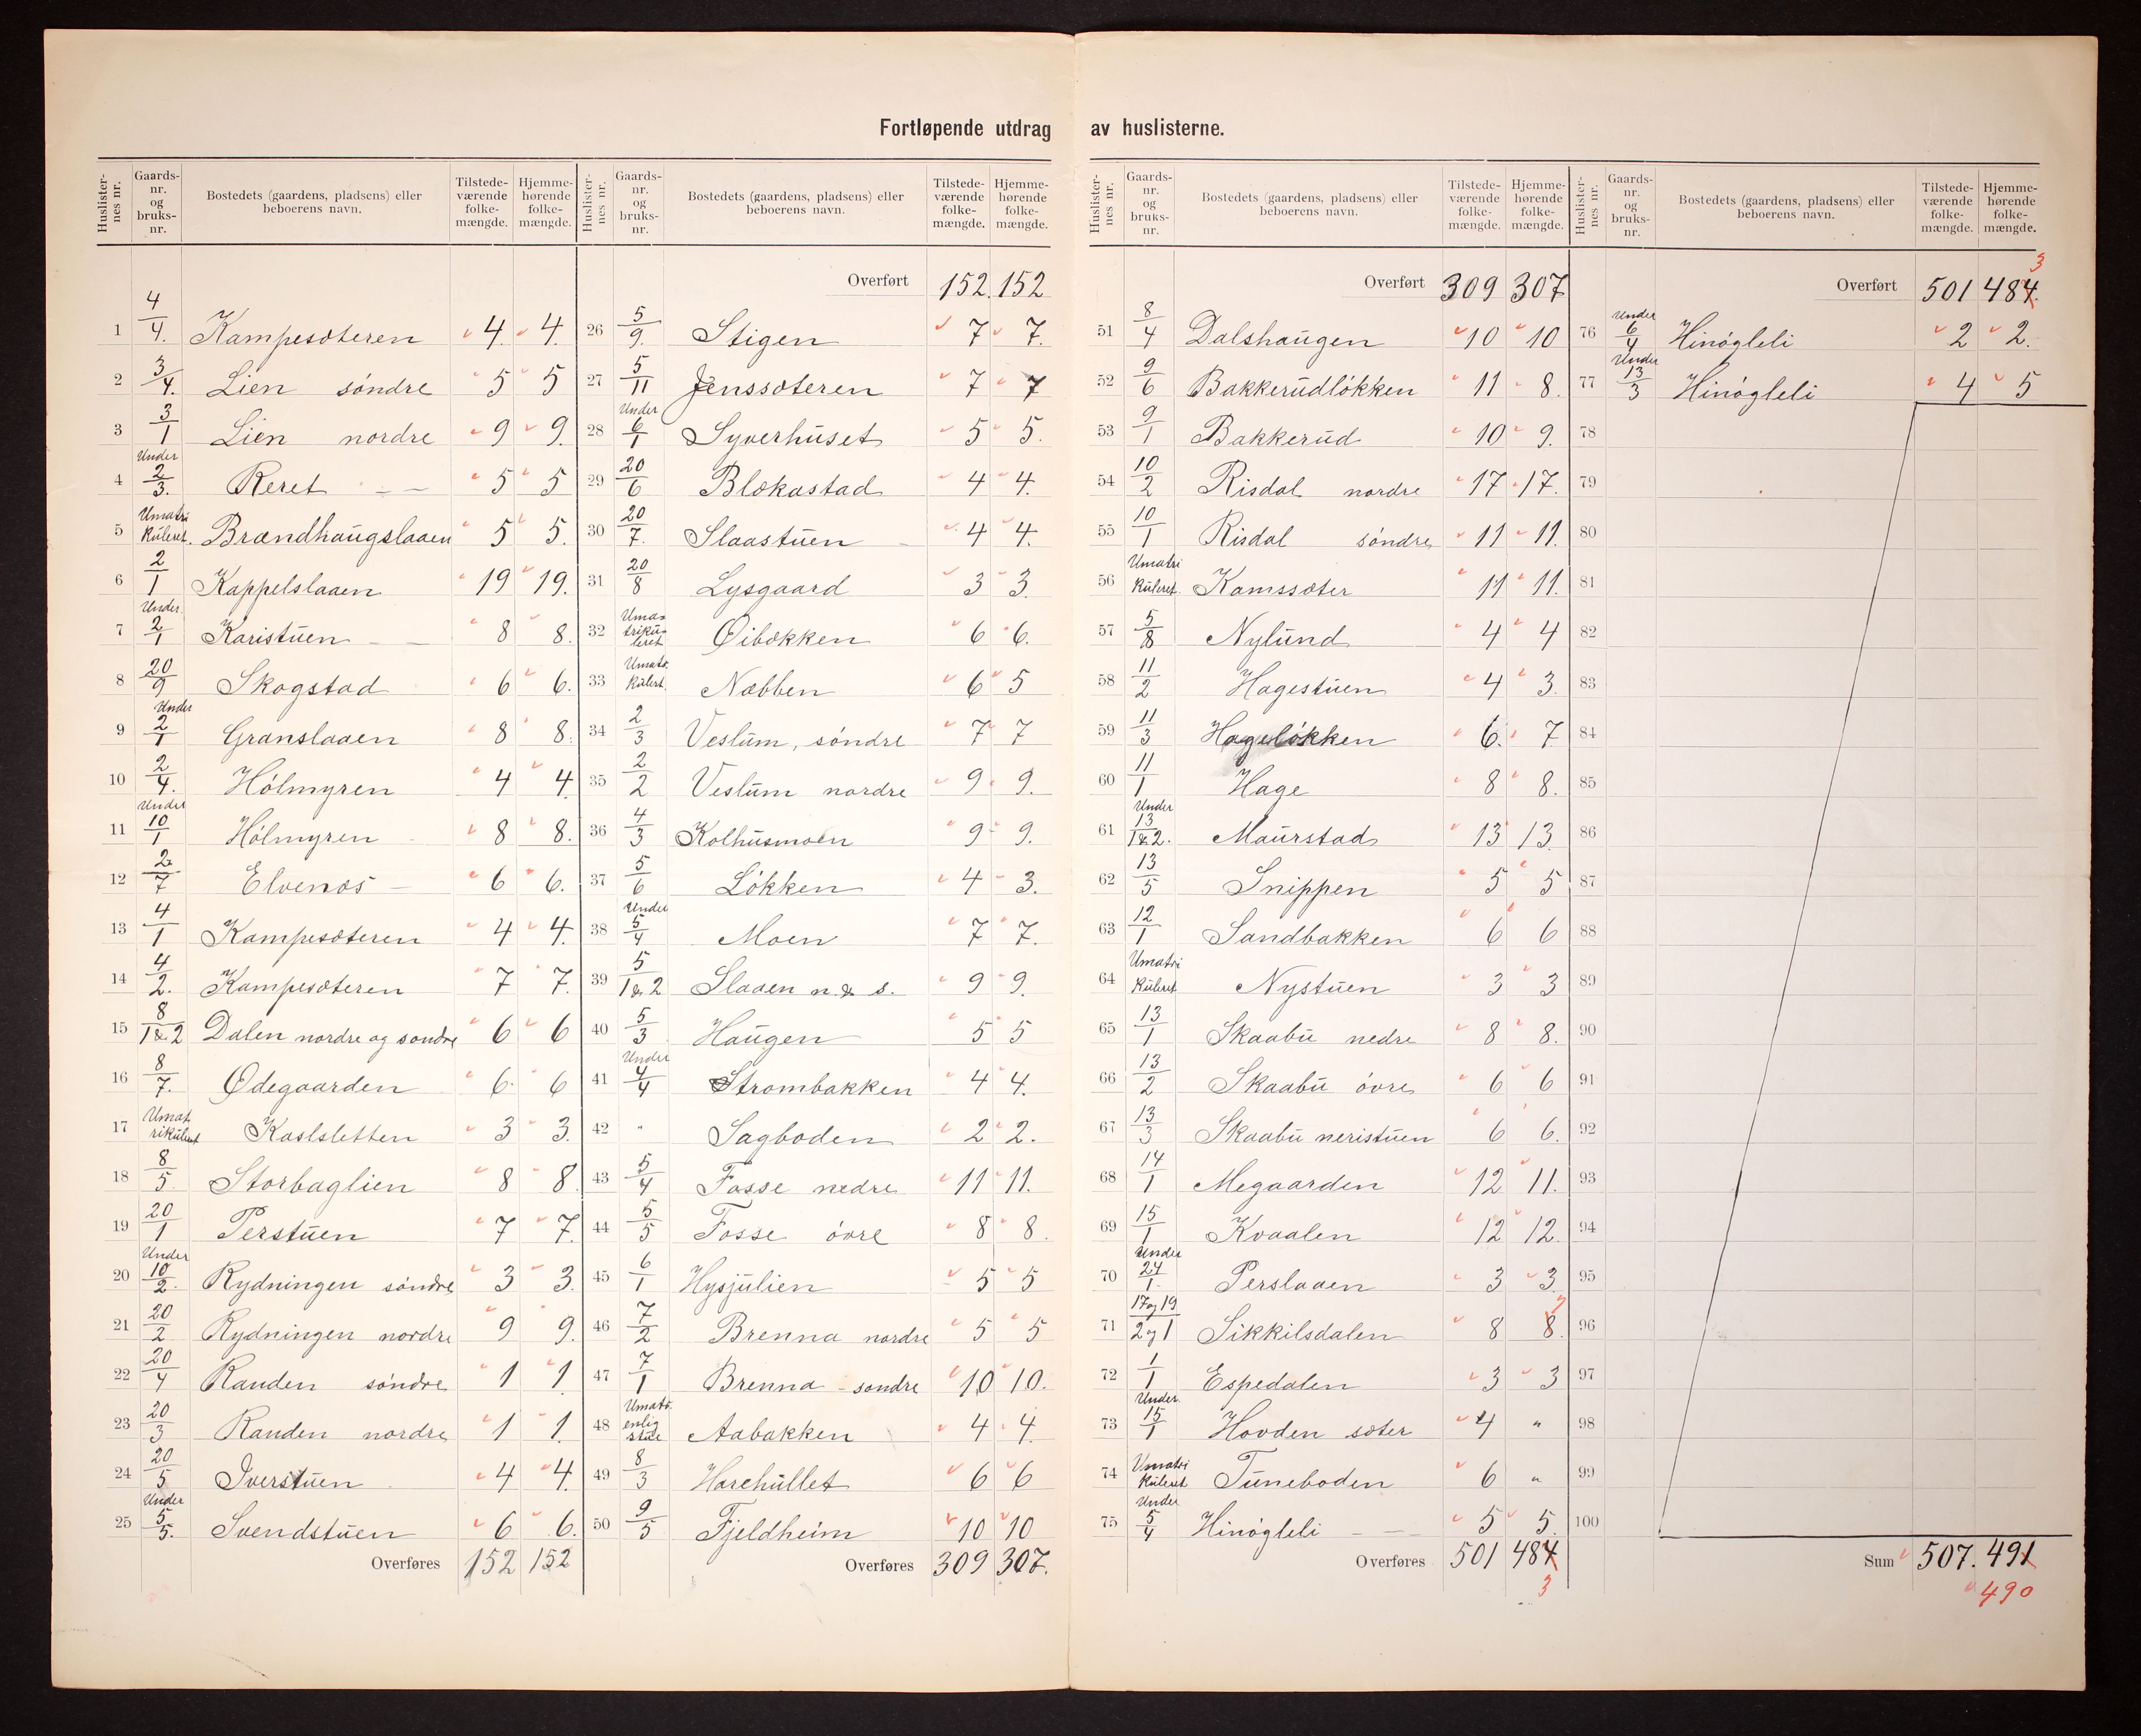 Fortløpende utdrag av huslisterne.
Huslister-nes nr. Gaards-nr. og bruks-nr. Bostedets (gaardens, pladsens) eller beboerens navn. Tilstede-værende folke-mængde. Hjemme-hørende folke-mængde.
1 4/4. Kampesæteren 4. 4.
2 3/4. Lien söndre 5 5
3 3/1 Lien nordre 9 9.
4 Under 2/3. Reret 5 5
5 Umatrikuleret. Brændhaugslaaen 5 5.
6 2/1 Kappelslaaen 19 19.
7 Under 2/1 Karistuen 8 8.
8 20/9 Skogstad 6 6.
9 Under 2/1 Granslaaen 8 8.
10 2/4. Hölmyren 4 4.
11 Under 10/1 Hölmyren 8 8.
12 2/7 Elvenæs 6 6.
13 4/1 Kampesæteren 4 4.
14 4/2. Kampesæteren 7 7.
15 8/1&2 Dalen nordre og søndre 6 6
16 8/7. Ødegaarden 6. 6
17 Umatrikulert Kaslsletten 3 3.
18 8/5 Storbaglien 8 8.
19 20/1 Perstuen 7 7.
20 Under 10/2. Rydningen söndre 3 3.
21 20/2 Rydningen nordre 9 9.
22 20/4 Randen söndre 1 1.
23 20/3 Randen nordre 1 1.
24 20/5 Iverstuen 4 4.
25 Under 5/5. Svendstuen 6 6.
Overføres 152 152
Huslister-nes nr. Gaards-nr. og bruks-nr. Bostedets (gaardens, pladsens) eller beboerens navn. Tilstede-værende folke-mængde. Hjemme-hørende folke-mængde.
Overført 152. 152
26 5/9. Stigen 7 7.
27 5/11 Jenssæteren 7 7
28 Under 6/1 Syverhuset 5 5.
29 20/6 Blekastad 4 4.
30 20/7. Slaastuen 4 4.
31 20/8 Lysgaard 3 3.
32 Umatrikuleret Øibækken 6 6.
33 Umatr. Kulert. Nabben 6 5
34 2/3 Veslum, söndre 7 7
35 2/2 Veslum nordre 9 9.
36 4/3 Kolhusmoen 9 9.
37 5/6 Lökken 4 3.
38 Under 5/4 Moen 7 7.
39 5/1&2 Slaaen n. & s. 9 9.
40 5/3 Haugen 5 5
41 Under 4/4 Strombakken 4 4.
42 " Sagboden 2 2.
43 5/4 Fosse nedre 11 11.
44 5/5 Fosse övre 8 8.
45 6/1 Hysjulien 5 5
46 7/2 Brenna nordre 5 5
47 7/1 Brenna - søndre 10 10.
48 Umatr. enlig stue Aabakken 4 4.
49 8/3 Harehullet 6 6
50 9/5 Fjeldheim 10 10
Overføres 309 307.
Huslister-nes nr. Gaards-nr. og bruks-nr. Bostedets (gaardens, pladsens) eller beboerens navn. Tilstede-værende folke-mængde. Hjemme-hørende folke-mængde.
Overført 309 307
51 8/4 Dalshaugen 10 10
52 9/6 Bakkerudlökken 11 8.
53 9/1 Bakkerud 10 9.
54 10/2 Risdal nordre 17 17.
55 10/1 Risdal söndre 11 11.
56 Umatrikuleret. Kamssæter 11 11.
57 5/8 Nylund 4 4
58 11/2 Hagestuen 4 3.
59 11/3 Hagelökken 6. 7
60 11/1 Hage 8 8.
61 Under 13/1&2. Maurstad 13 13.
62 13/5 Snippen 5 5
63 12/1 Sandbakken 6 6
64 Umatrikuleret Nystuen 3 3
65 13/1 Skaabu nedre 8 8.
66 13/2 Skaabu övre 6 6
67 13/3 Skaabu neristuen 6 6.
68 14/1 Megaarden 12 11.
69 15/1 Kvaalen 12 12.
70 Under 24/1. Perslaaen 3 3.
71 17og19/2og1 Sikkilsdalen 8 8. 7
72 1/1 Espedalen 3 3
73 Under 15/1 Hovden sæter 4 "
74 Umatrikuleret Tuneboden 6 "
75 Under 5/4 Hinögleli 5 5.
Overføres 501 484
3
Huslister-nes nr. Gaards-nr. og bruks-nr. Bostedets (gaardens, pladsens) eller beboerens navn. Tilstede-værende folke-mængde. Hjemme-hørende folke-mængde.
3
Overført 501 484.
76 Under 6/4 Hinögleli 2 2.
77 Under 13/3 Hinögleli 4 5
78
79
80
81
82
83
84
85
86
87
88
89
90
91
92
93
94
95
96
97
98
99
100
Sum 507. 491
490